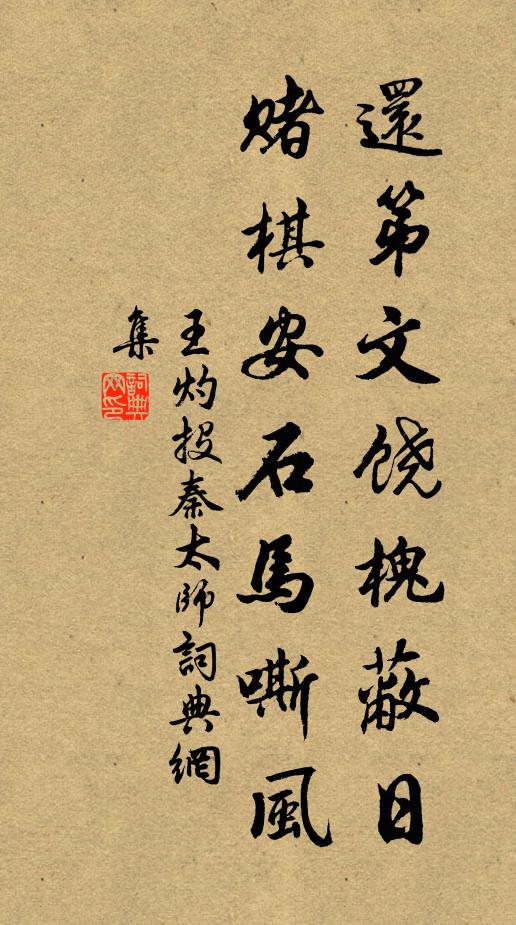 還第文饶槐蔽日
赌棋安石馬嘶風
王灼投秦太師詞典網
集
詞典網印